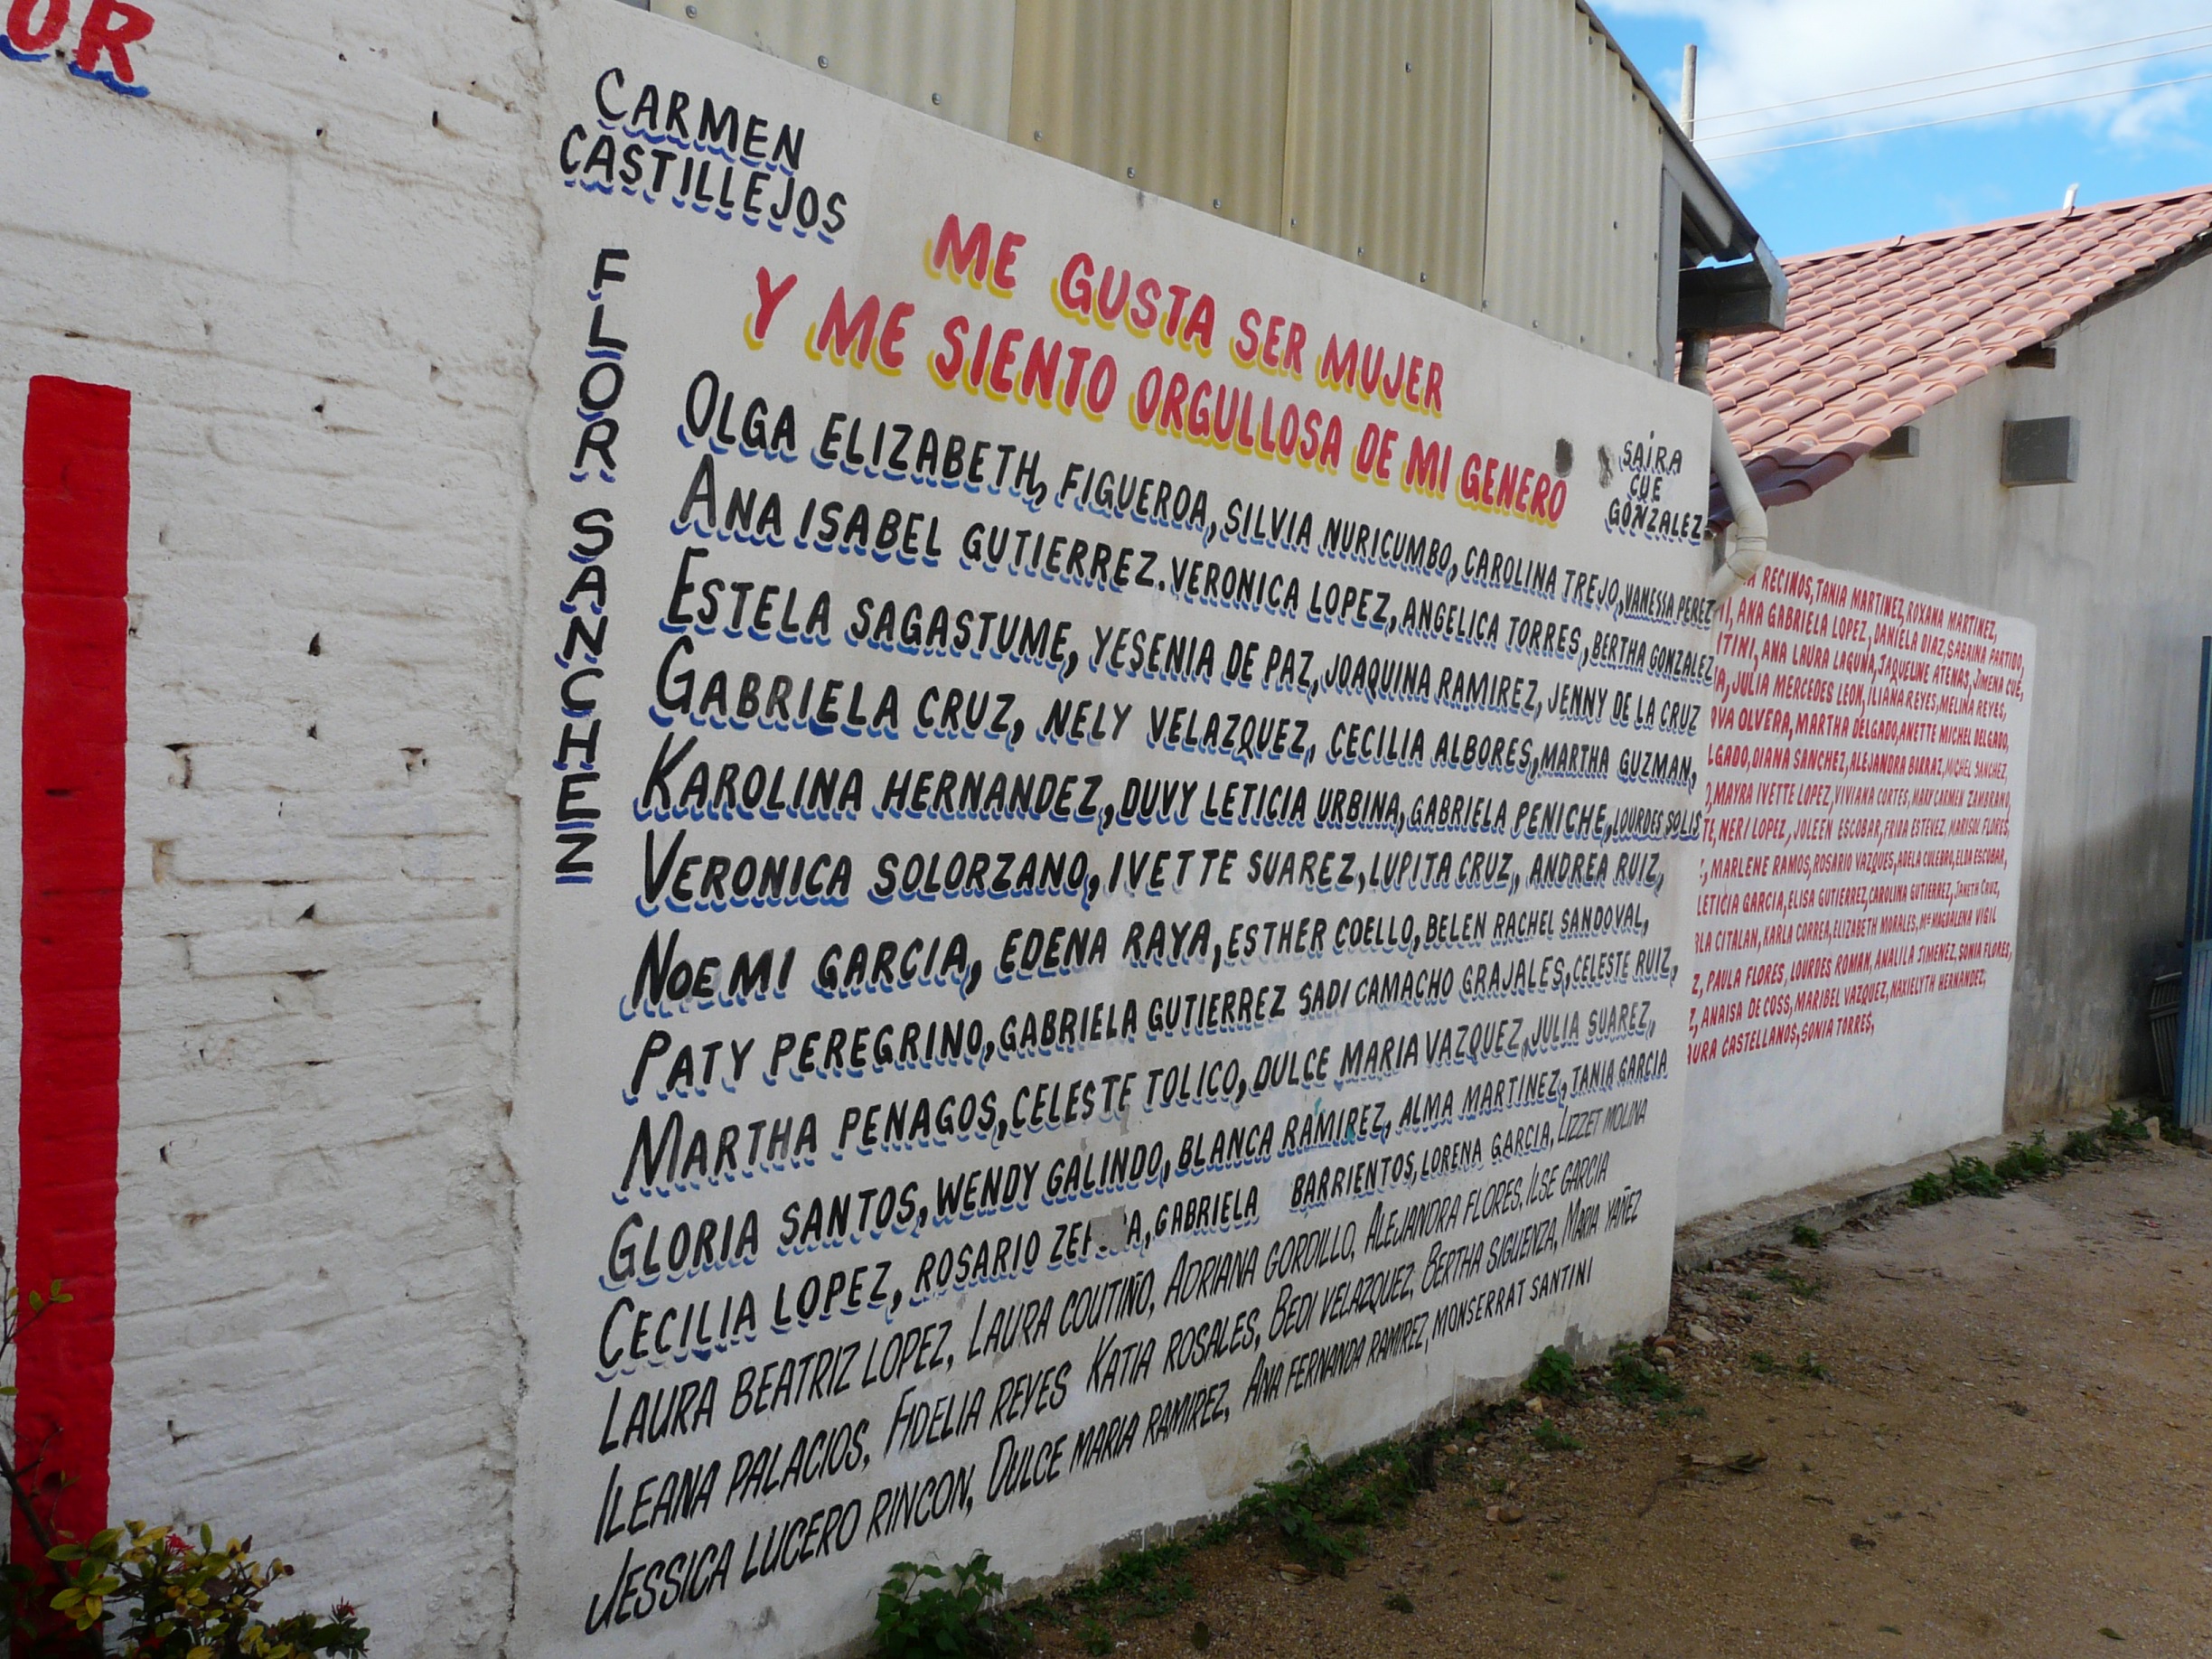 OR
CARMEN
CASTILLEJOS
FLOR SANCHEZ
ME GUSTA SER MUJER
Y ME SIENTO ORGULLOSA DE MI GENERO
SAIRA
CUE
GONZALEZ
OLGA ELIZABETH, FIGUEROA, SILVIA NURICUMBO, CAROLINA TREJO, VANESSA PEREZ
ANA ISABEL GUTIERREZ. VERONICA LOPEZ, ANGELICA TORRES, BERTHA GONZALEZ
ESTELA SAGASTUME, YESENIA DE PAZ, JOAQUINA RAMIREZ, JENNY DE LA CRUZ
GABRIELA CRUZ, NELY VELAZQUEZ, CECILIA ALBORES, MARTHA GUZMAN,
KAROLINA HERNANDEZ, DUVY LETICIA URBINA, GABRIELA PENICHE, LOURDES SOLIS
VERONICA SOLORZANO, IVETTE SUAREZ, LUPITA CRUZ, ANDREA RUIZ,
NOEMI GARCIA, EDENA RAYA, ESTHER COELLO, BELEN RACHEL SANDOVAL,
PATY PEREGRINO, GABRIELA GUTIERREZ SADI CAMACHO GRAJALES, CELESTE RUIZ,
MARTHA PENAGOS, CELESTE TOLICO, DULCE MARIA VAZQUEZ, JULIA SUAREZ,
GLORIA SANTOS, WENDY GALINDO, BLANCA RAMIREZ, ALMA MARTINEZ, TANIA GARCIA
CECILIA LOPEZ, ROSARIO GABRIELA BARRIENTOS, LORENA GARCIA, LIZZET MOLINA
LAURA BEATRIZ LOPEZ, LAURA COUTIÑO, ADRIANA GORDILLO, ALEJANDRA FLORES, ILSE GARCIA
ILEANA PALACIOS, FIDELIA REYES KATIA ROSALES, BEDI VELAZQUEZ, BERTHA SIGUENZA, MARIA YAÑEZ
JESSICA LUCERO RINCON, DULCE MARIA RAMIREZ, ANA FERNANDA RAMIREZ, MONSERRAT SANTINI
RECINOS, TANIA MARTINEZ, ROXANA MARTINEZ,
ANA GABRIELA LOPEZ, DANIELA DIAZ, SABRINA PARTIDO,
ANA LAURA LAGUNA, JAQUELINE ATENAS, JIMENA CUE,
JULIA MERCEDES LEON, ILIANA REYES, MELINA REYES,
OLVERA, MARTHA DELGADO, ANETTE MICHEL DELGADO,
LGADO, DIANA SANCHEZ, ALEJANDRA BORRAZ, MICHEL SANCHEZ,
MAYRA IVETTE LOPEZ, VIVIANA CORTES, MARY CARMEN ZAMBRANO,
NERI LOPEZ, JOLEEN ESCOBAR, FRIDA ESTEVEZ MARISOL FLORES,
MARLENE RAMOS, ROSARIO VAZQUES, ADELA CULEBRO, ELDA ESCOBAR,
LETICIA GARCIA, ELISA GUTIERREZ, CAROLINA GUTIERREZ, JANETH CRUZ,
RLA CITALAN, KARLA CORREA, ELIZABETH MORALES, Ma MAGDALENA VIGIL
Z, PAULA FLORES, LOURDES ROMAN, ANALILA JIMENEZ, SONIA FLORES,
Z, ANAISA DE COSS, MARIBEL VAZQUEZ, NAXIELYTH HERNANDEZ,
AURA CASTELLANOS, SONIA TORRES,